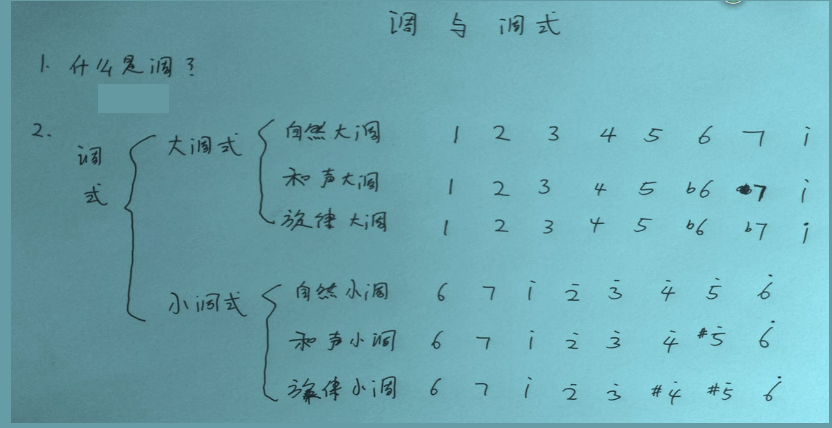 调与调式
1. 什么是调?
2.
调式
大调式
自然大调 1 2 3 4 5 6 7 i
和声大调 1 2 3 4 5 b6 7 i
旋律大调 1 2 3 4 5 b6 b7 i
小调式
自然小调 6 7 i 2̇ 3̇ 4̇ 5̇ 6̇
和声小调 6 7 i 2̇ 3̇ 4̇ #5̇ 6̇
旋律小调 6 7 i 2̇ 3̇ #4̇ #5̇ 6̇